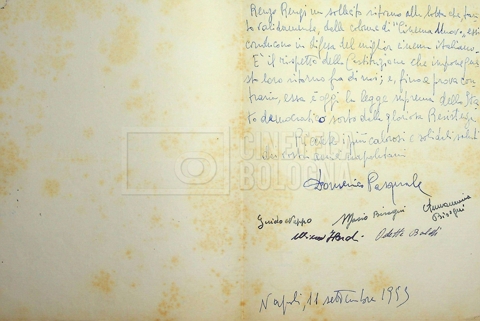 Renzo Renzi un sollecito ritorno alla lotta che, tan-
to validamente, dalle colonne di "Cinema Nuovo", essi
conducono in difesa del miglior cinema italiano.
È il rispetto della Costituzione che impone
sto loro ritorno fra di noi; e, fino a prova con-
traria, essa è oggi la legge suprema dello Sta-
to democratico sorto dalla gloriosa Resistenza
i più calorosi e solidali saluti
napoletani
Domenico Pasquale
Guido Mario Annamaria
Odette
Napoli, 11 settembre 1953
CINETECA
BOLOGNA